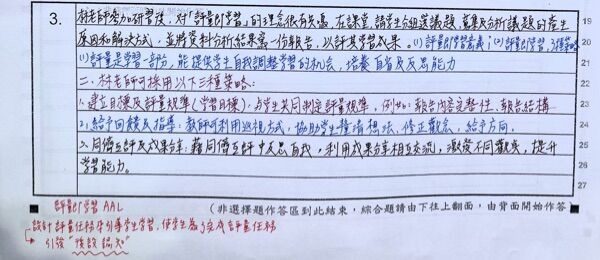 3.
林老師參加研習後，對「評量即學習」的理念很有共鳴，在課堂，請學生分組選議題，蒐集及分析議題的產生
原因和解決方式，並將資料分析結果寫一份報告，以評其學習成果。(1)評量即學習意義；(2)評量即學習，3種策略
(1)評量是學習一部分，能提供學生自我調整學習的机會，培養自省及反思能力
二、林老師可採用以下三種策略：
1.建立目標及評量規準(學習目標)，与學生共同制定評量規準，例如：報告內容完整性、報告結構
2.給予回饋及指導：教師可利用巡視方式，協助學生釐清想法，修正觀念，給予方向。
3.同儕互評及成果分享：藉同儕互評中反思自我，利用成果分享相互交流，激發不同觀點，提升
學習能力。
19
20
21
22
23
24
25
26
27
(非選擇題作答區到此結束，綜合題請由下往上翻面，由背面開始作答
評量即學習 AAL
設計評量任務來引導學生學習，使學生為了完成評量任務
引發"後設認知"